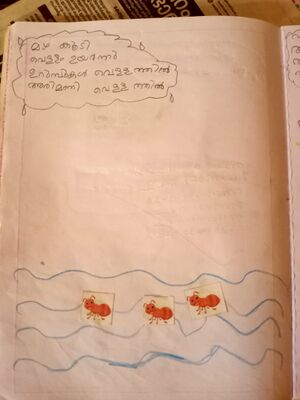 മഴ കൂടി
വെള്ളം ഉയർന്നു
ഉറുമ്പുകൾ വെള്ളത്തിൽ
അരിമണി വെള്ളത്തിൽ